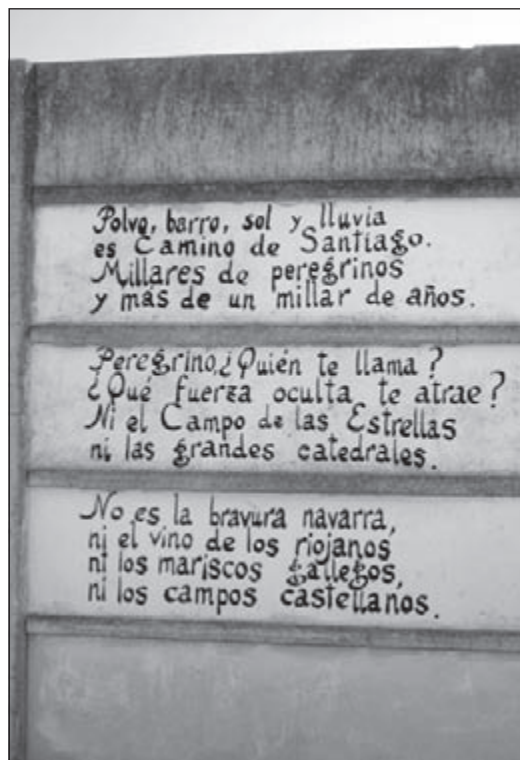 Polvo, barro, sol y lluvia
es Camino de Santiago.
Millares de peregrinos
y más de un millar de años.
Peregrino, ¿Quién te llama?
¿Qué fuerza oculta te atrae?
Ni el Campo de las Estrellas
ni las grandes catedrales.
No es la bravura navarra,
ni el vino de los riojanos
ni los mariscos gallegos,
ni los campos castellanos.